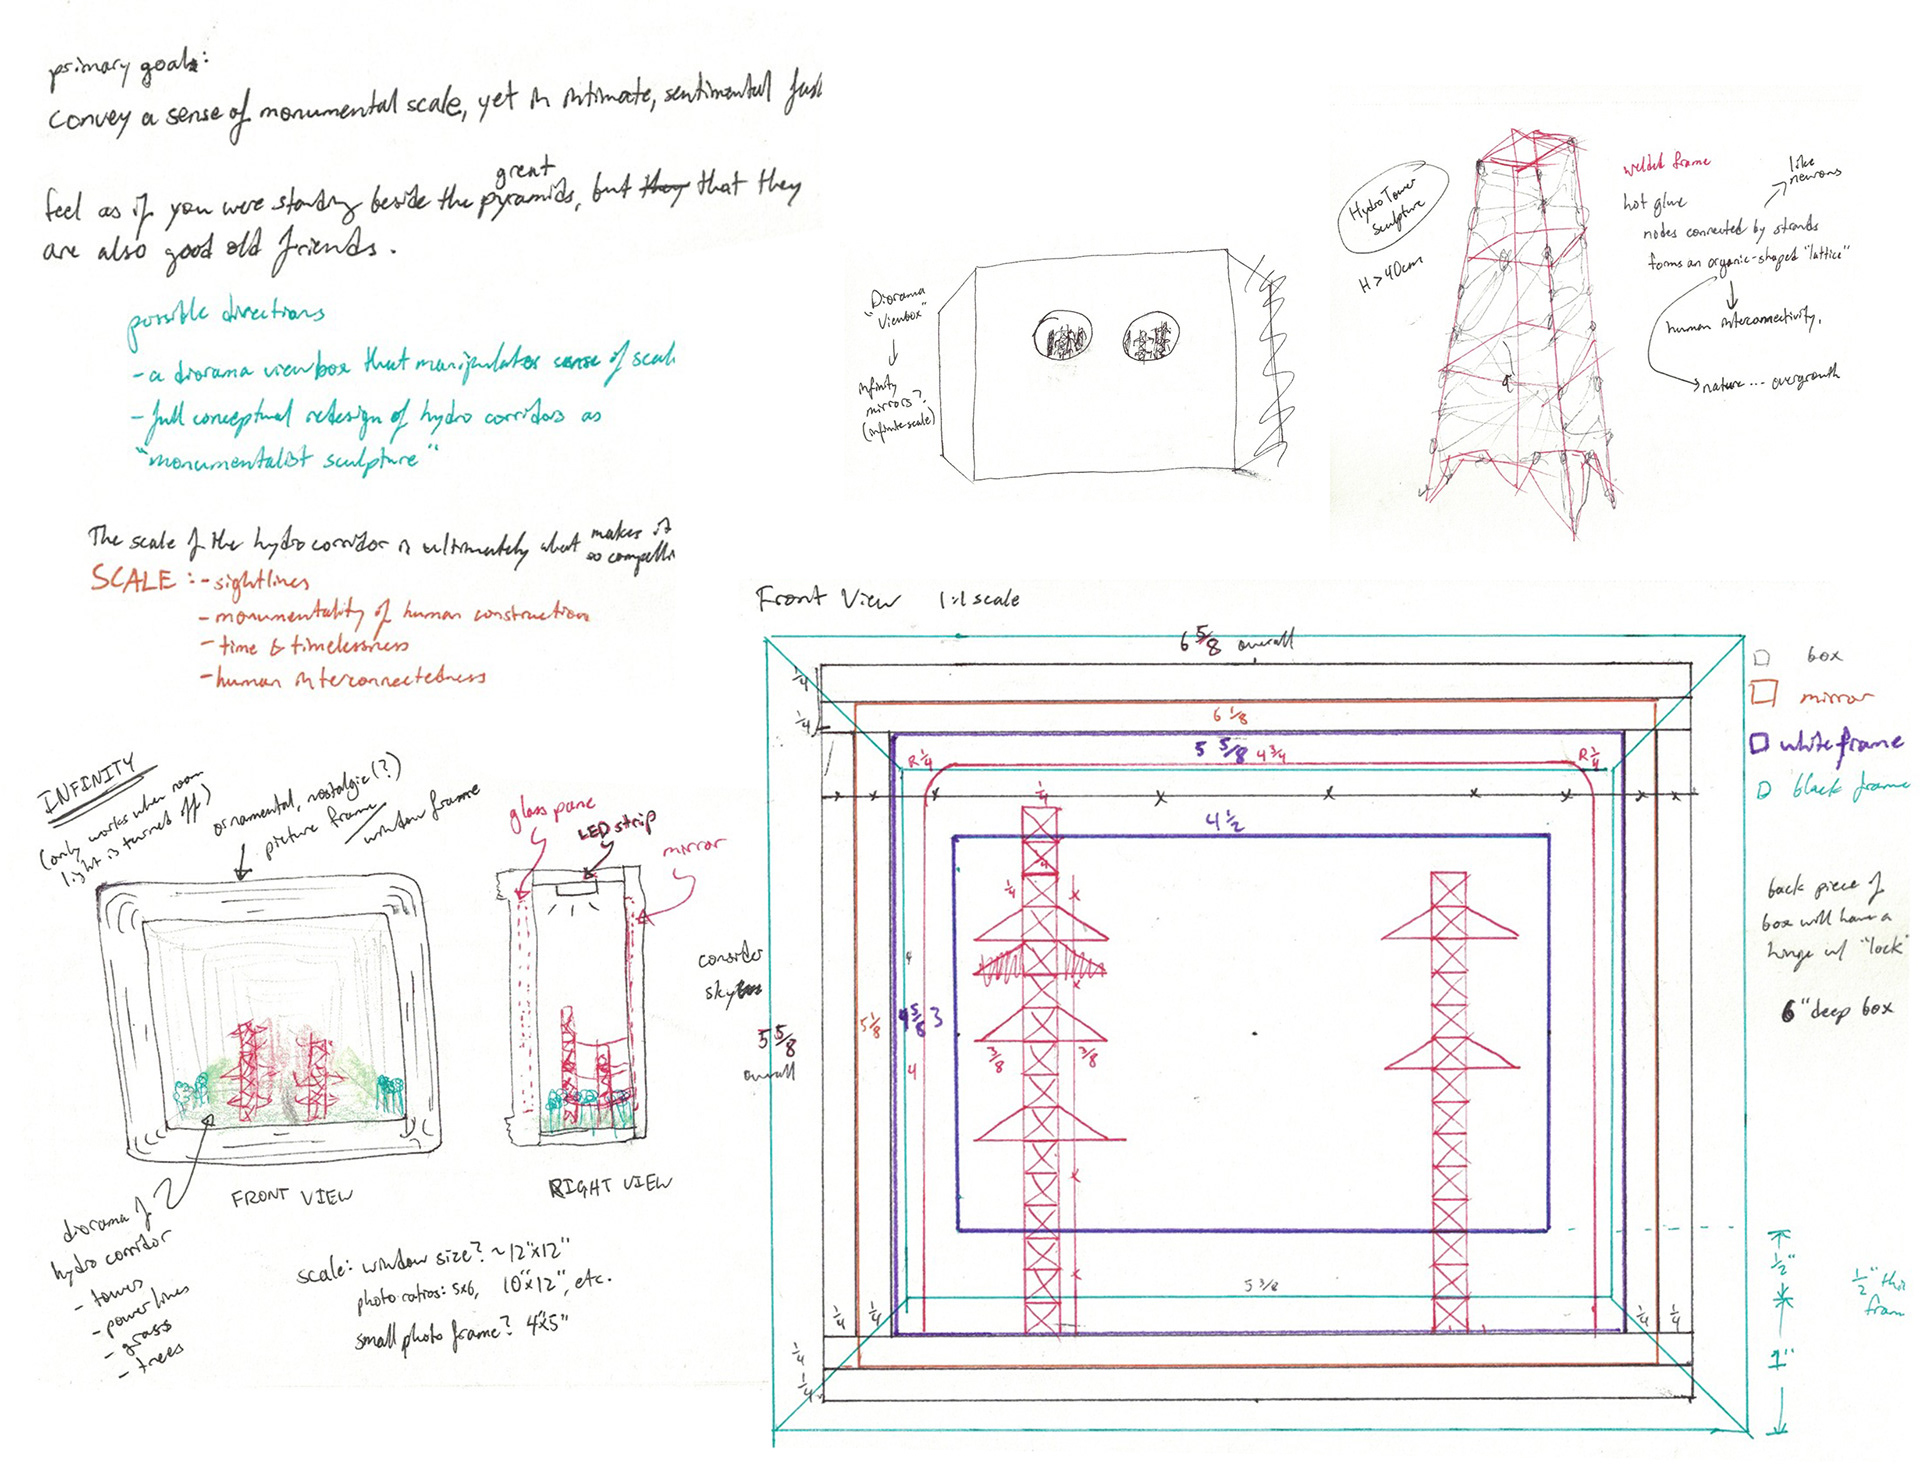 primary goal:
convey a sense of monumental scale, yet in intimate, sentimental
great
feel as if you were standing beside the pyramids, but they that they
are also good old friends.
possible directions
- a diorama viewbox that manipulates sense of scale
- full conceptual redesign of hydro corridors as
"monumentalist sculpture"
The scale of the hydro corridor is ultimately what makes it
so compelli
SCALE: - sightlines
- monumentality of human construction
- time & timelessness
- human interconnectedness
Diorama
"Viewbox"
infinity
mirrors?
(infinite scale)
Hydro Tower
sculpture
H > 40cm
welded frame
like
neurons
hot glue
nodes connected by strands
forms an organic-shaped "lattice"
human interconnectivity.
nature... overgrowth
INFINITY
(only works when room
light is turned off)
ornamental, nostalgic(?)
picture frame/
window frame
FRONT VIEW
diorama of
hydro corridor
- tower
- power lines
- grass
- trees
glass pane
LED strip
mirror
RIGHT VIEW
consider
sky
scale: window size? ~12"x12"
photo ratios: 5x6, 10"x12", etc.
small photo frame? 4"x5"
Front View 1:1 scale
6 5/8 overall
1/4
1/4
6 1/8
5 5/8
4 3/4
R 1/4
R 1/4
1/4
4 1/2
1/4
4
5 5/8
overall
5 1/8
4 5/8
3
3/8
3/8
4
5 3/8
1/4
1/4
1/4
1/4
1/4
1/4
box
mirror
white frame
black frame
back piece of
box will have a
hinge w/ "lock"
6" deep box
1/2"
1"
1/2" thi
fram